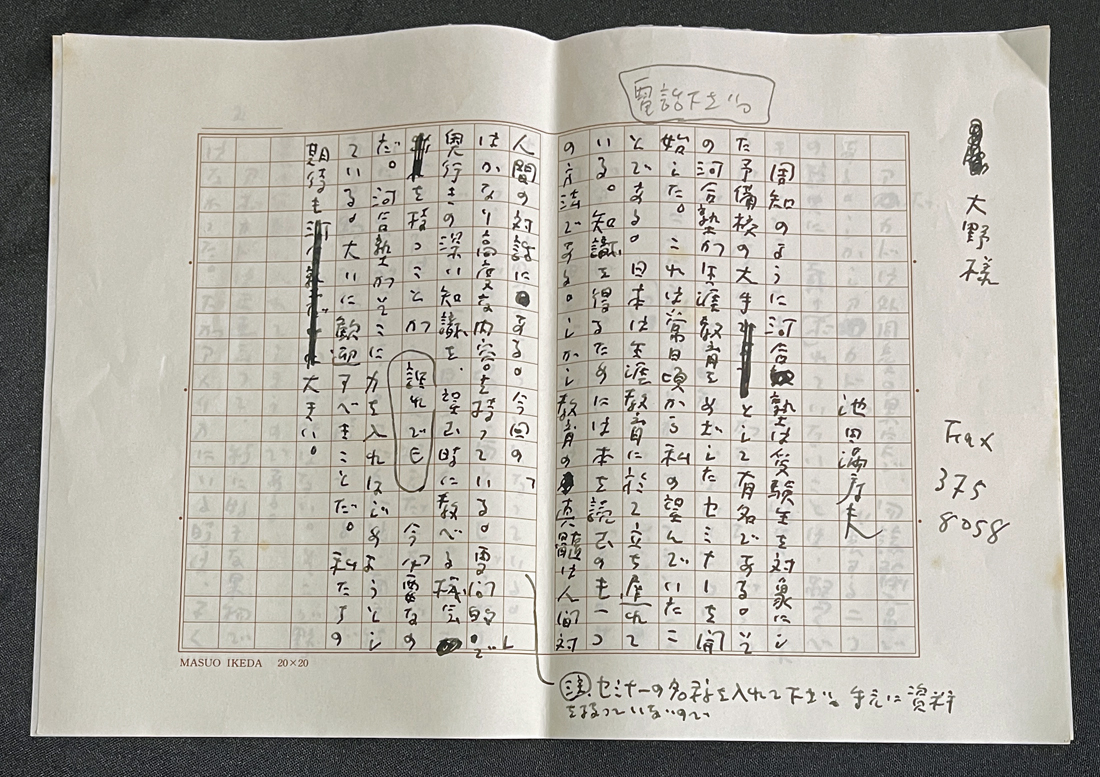 電話下さい。
大野様
Fax
375
8058
池田満寿夫
周知のように河合塾は受験生を対象にし
た予備校の大手として有名である。そ
の河合塾が生涯教育をめざしたセミナーを開
始した。これは常日頃から私の望んでいたこ
とである。日本は生涯教育に於て立ち遅れて
いる。知識を得るためには本を読むのも一つ
の方法である。しかし教育の真髄は人間対
人間の対話にある。今回の「
」
はかなり高度な内容を持っている。専門的で
奥行きの深い知識を望む時に教べる機会
を持つことが誰れでも今必要なの
だ。河合塾がそこに力を入れはじめようとし
ている。大いに歓迎すべきことだ。私たちの
期待も大きい。
注 セミナーの名称を入れて下さい。手元に資料
を持っていないので
MASUO IKEDA 20×20